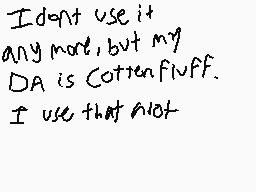 I dont use it
any more, but my
DA is Cottenfluff.
I use that alot